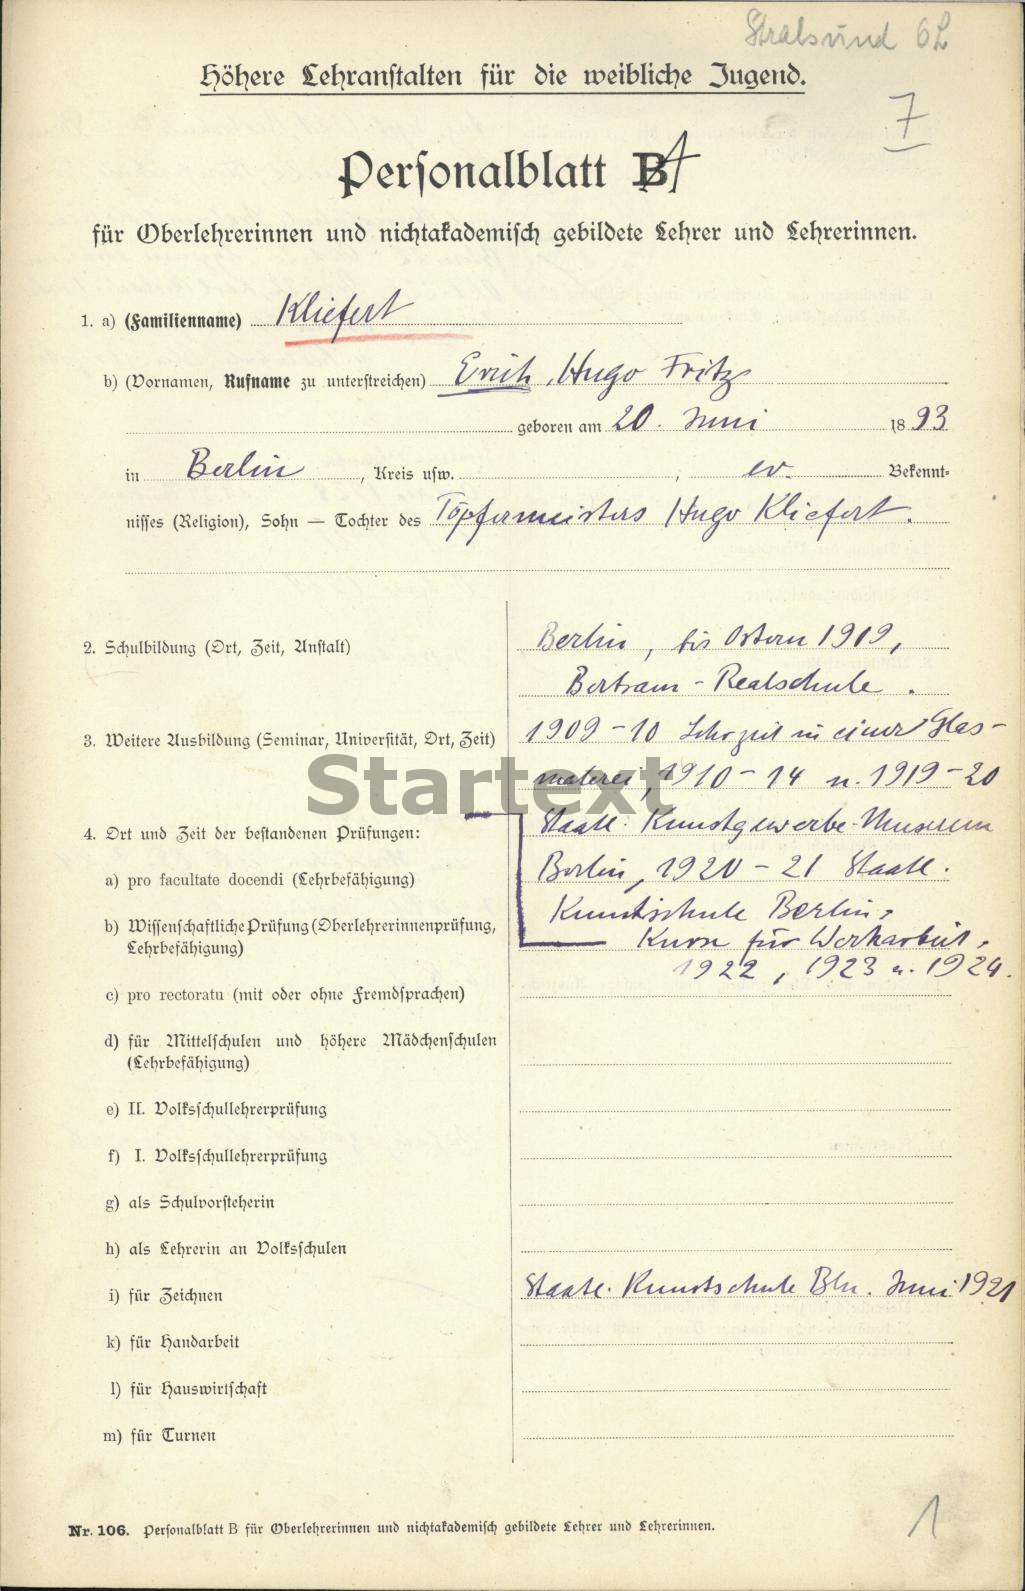 Stralsund 6L
Höhere Lehranstalten für die weibliche Jugend.
7
Personalblatt B A
für Oberlehrerinnen und nichtakademisch gebildete Lehrer und Lehrerinnen.
1. a) (Familienname) Kliefert
b) (Vornamen, Rufname zu unterstreichen) Erich, Hugo Fritz
geboren am 20. Juni 1893
in Berlin, Kreis usw. , ev. Bekennt-
nisses (Religion), Sohn — Tochter des Töpfermeisters Hugo Kliefert.
2. Schulbildung (Ort, Zeit, Anstalt) Berlin, bis Ostern 1919,
Bertram-Realschule.
3. Weitere Ausbildung (Seminar, Universität, Ort, Zeit) 1909-10 Lehrzeit in einer Glas-
malerei, 1910-14 u. 1919-20
Startext
Staatl. Kunstgewerbe-Museum
4. Ort und Zeit der bestandenen Prüfungen:
a) pro facultate docendi (Lehrbefähigung) Berlin, 1920-21 Staatl.
Kunstschule Berlin,
b) Wissenschaftliche Prüfung (Oberlehrerinnenprüfung,
Lehrbefähigung) Kurse für Werkarbeit,
1922, 1923 u. 1924.
c) pro rectoratu (mit oder ohne Fremdsprachen)
d) für Mittelschulen und höhere Mädchenschulen
(Lehrbefähigung)
e) II. Volksschullehrerprüfung
f) I. Volksschullehrerprüfung
g) als Schulvorsteherin
h) als Lehrerin an Volksschulen
i) für Zeichnen Staatl. Kunstschule Bln. Juni 1921
k) für Handarbeit
l) für Hauswirtschaft
m) für Turnen
Nr. 106. Personalblatt B für Oberlehrerinnen und nichtakademisch gebildete Lehrer und Lehrerinnen.
1